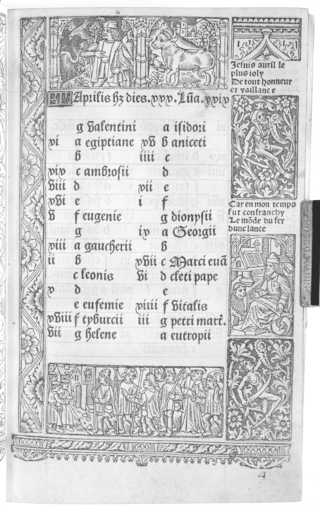 Aprilis hꝫ dies .xxx. Lūa .xxix
g valentini
xi a egiptiane
b
xix c ambrosii
viii d
xvi e
v f eugenie
g
xiii a gaucherii
ii b
c leonis
x d
e eufemie
xviii f tyburcii
vii g helene
a isidori
xv b aniceti
iiii c
d
xii e
i f
g dionysii
ix a Georgii
b
xvii c Marci euā
vi d cleti pape
e
xiiii f vitalis
iii g petri mart.
a eutropii
Je suis auril le
plus ioly
De tout honneur
et vaillance
Car en mon temps
fut
Le du fer
dune lance